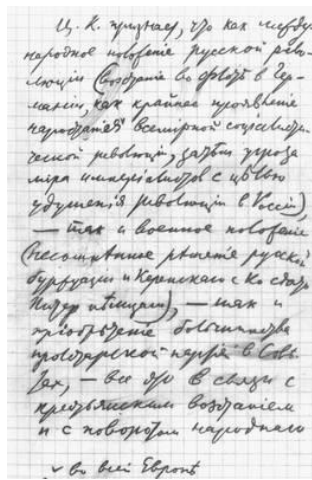 Ц. К. признает, что как между
народное положение русской рево-
люции (восстание во флоте в Гер-
мании, как крайнее проявление
нарастания всемирной социалисти-
ческой революции, затѣм угроза
мира имперіалистов с цѣлью
удушенія революціи в Россіи),
— так и военное положение
(несомнѣнное рѣшеніе русской
буржуазіи и Керенскаго с Ко сдать
Питер нѣмцам), — так и
пріобрѣтеніе большинства
пролетарской партіей в Совѣ-
тах, — все это в связи с
крестьянским возстаніем
и с поворотом народнаго
во всей Европѣ